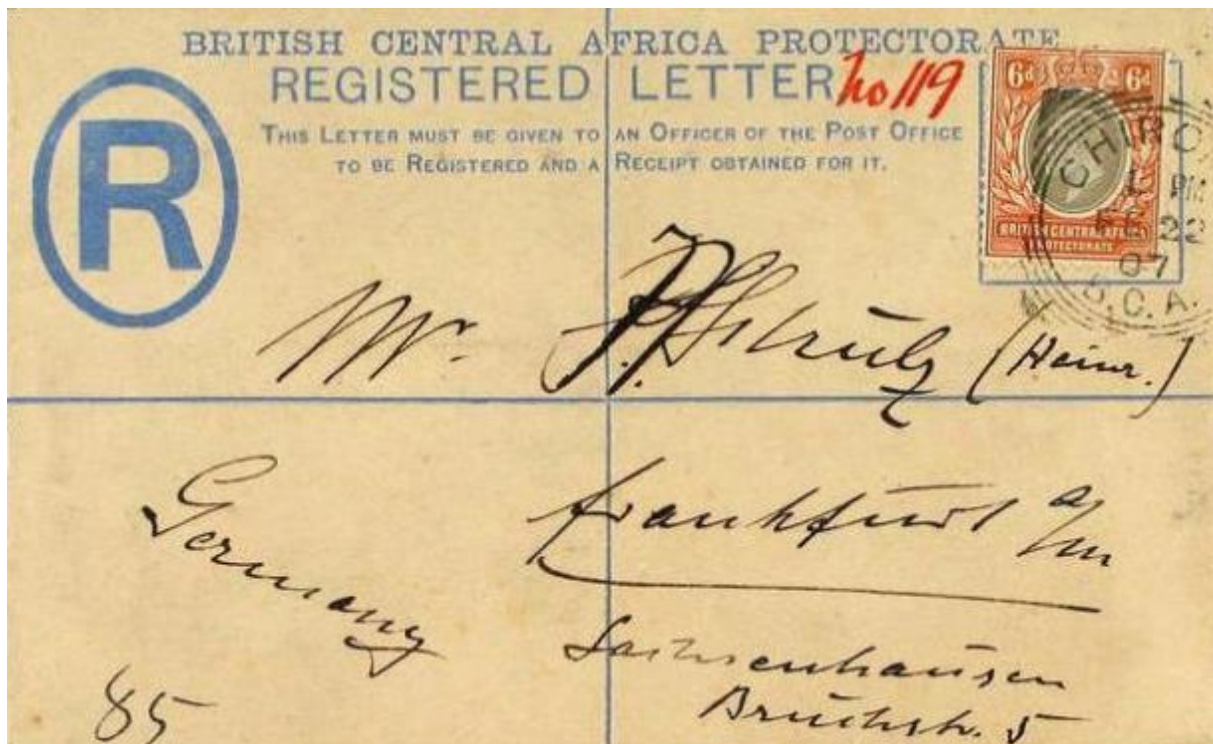 BRITISH CENTRAL AFRICA PROTECTORATE
REGISTERED LETTER
No 119
THIS LETTER MUST BE GIVEN TO AN OFFICER OF THE POST OFFICE
TO BE REGISTERED AND A RECEIPT OBTAINED FOR IT.
R
6d 6d
BRITISH CENTRAL AFRICA
PROTECTORATE
CHIRO
1 PM
FE 22
07
B.C.A.
Mr. (Heinr.)
Frankfurt a/m
Germany
Sachsenhausen
Bruchstr. 5
85